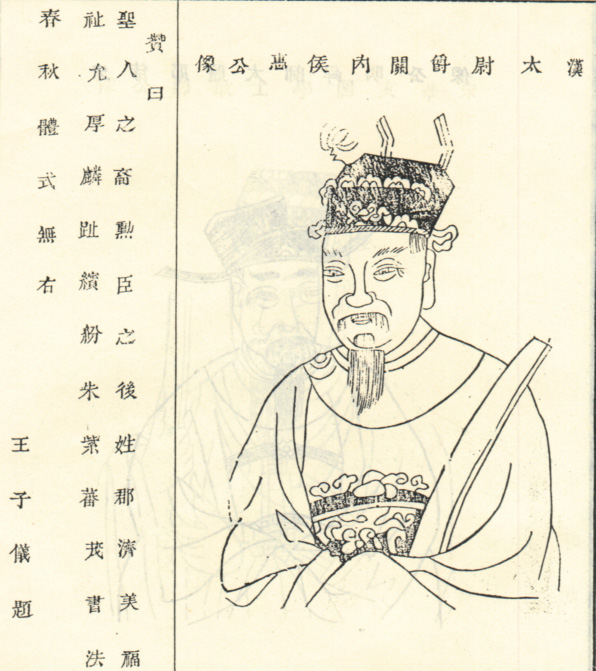 漢太尉爵關内侯公像
贊曰
聖人之裔勳臣之後姓郡濟美福
祉允厚麟趾繽紛朱紫蕃茂書法
春秋體式無右
王子儀題